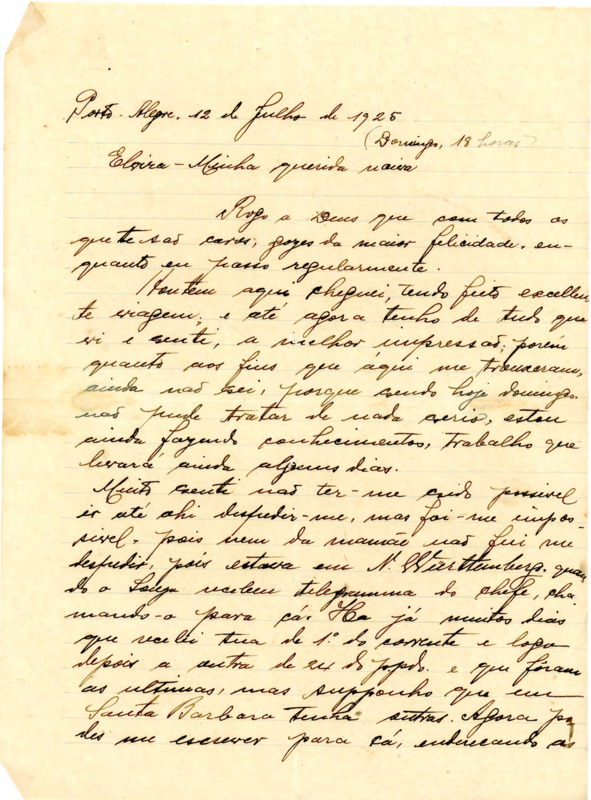 Porto-Alegre, 12 de Julho de 1925
(Domingo, 18 horas)
Eloira - Minha querida noiva
Rogo a Deus que com todos os
que te são caros, gozes da maior felicidade, en-
quanto eu passo regularmente.
Hontem aqui cheguei, tendo feito excellen-
te viagem, e até agora tenho de tudo que
vi e senti, a melhor impressão; porém
quanto aos fins que aqui me trouxeram,
ainda não sei, porque sendo hoje domingo,
não pude tratar de nada serio, estou
ainda fazendo conhecimentos, trabalho que
levará ainda alguns dias.
Muito senti não ter-me sido possivel
ir até ahi despedir-me, mas foi-me impos-
sivel, pois nem da mamãe não fui me
despedir, pois estava em N. Württemberg, quan-
do o Souza recebeu telegramma do chefe, cha-
mando-o para cá. Ha já muitos dias
que recebi tua de 1º do corrente e logo
depois a outra de 24 do ppdo. e que foram
as ultimas, mas supponho que em
Santa Barbara tenha outras. Agora po-
des me escrever para cá, endereçando as